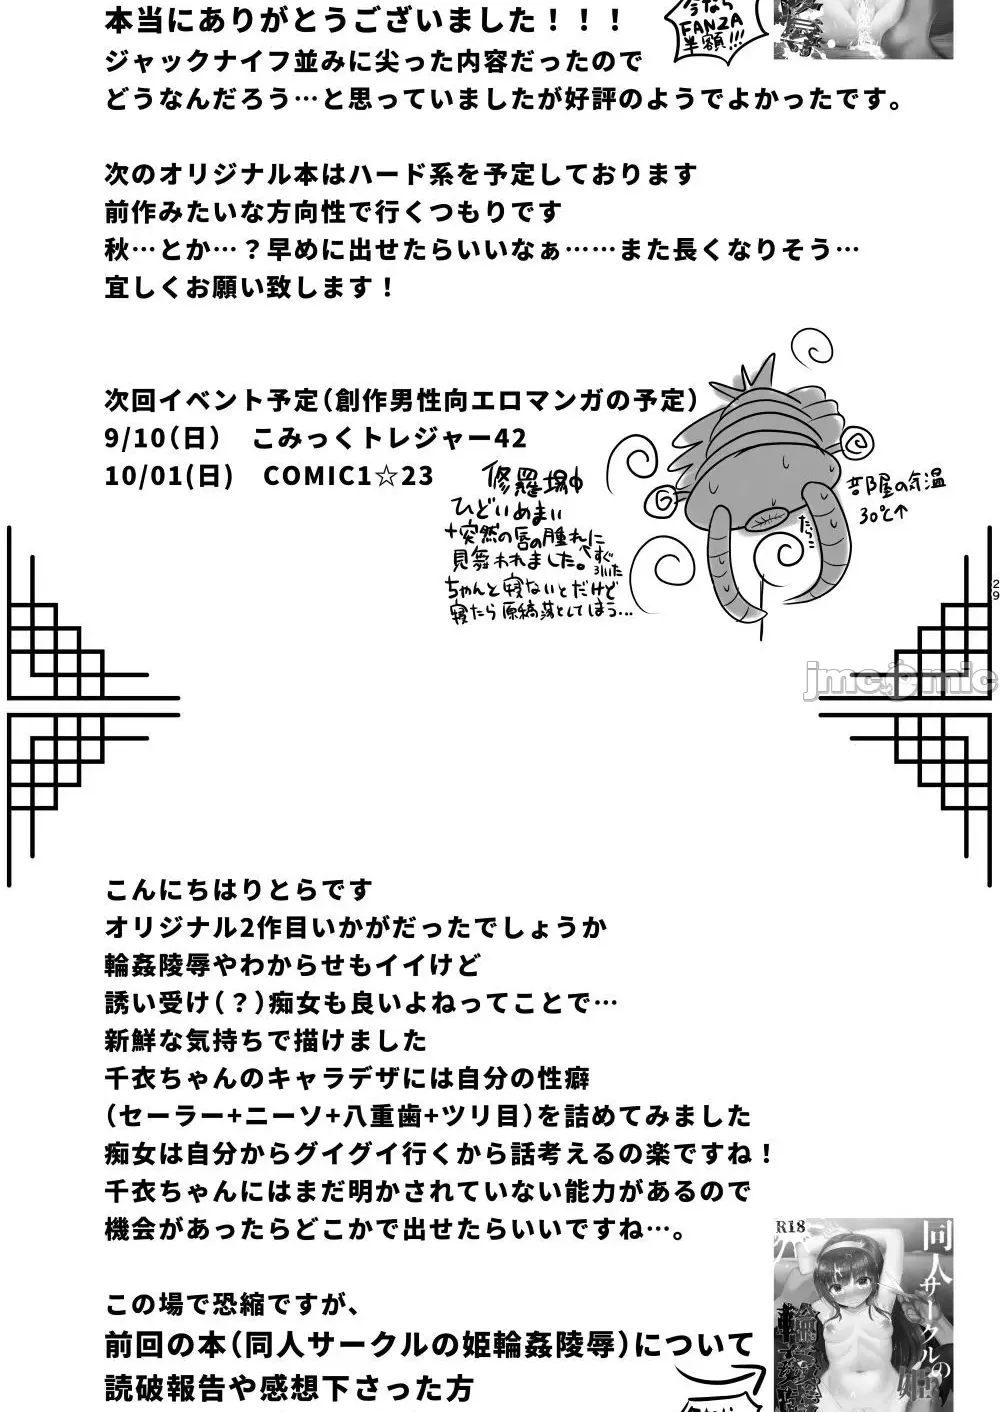 本当にありがとうございました！！！
今なら
FANZA
半額!!!
ジャックナイフ並みに尖った内容だったので
どうなんだろう…と思っていましたが好評のようでよかったです。
次のオリジナル本はハード系を予定しております
前作みたいな方向性で行くつもりです
秋…とか…？早めに出せたらいいなぁ……また長くなりそう…
宜しくお願い致します！
次回イベント予定（創作男性向エロマンガの予定）
9/10（日）　こみっくトレジャー42
10/01(日)　COMIC1☆23
修羅場中
ひどいめまい
+突然の唇の腫れに
見舞われました。←すぐ
引いた
ちゃんと寝ないとだけど
寝たら原稿落としてしまう…
部屋の気温
30℃↑
たらこ
29
jmcomic
こんにちはりとらです
オリジナル2作目いかがだったでしょうか
輪姦陵辱やわからせもイイけど
誘い受け（？）痴女も良いよねってことで…
新鮮な気持ちで描けました
千衣ちゃんのキャラデザには自分の性癖
（セーラー+ニーソ+八重歯+ツリ目）を詰めてみました
痴女は自分からグイグイ行くから話考えるの楽ですね！
千衣ちゃんにはまだ明かされていない能力があるので
機会があったらどこかで出せたらいいですね…。
この場で恐縮ですが、
前回の本（同人サークルの姫輪姦陵辱）について
読破報告や感想下さった方
R18
同人サークルの姫